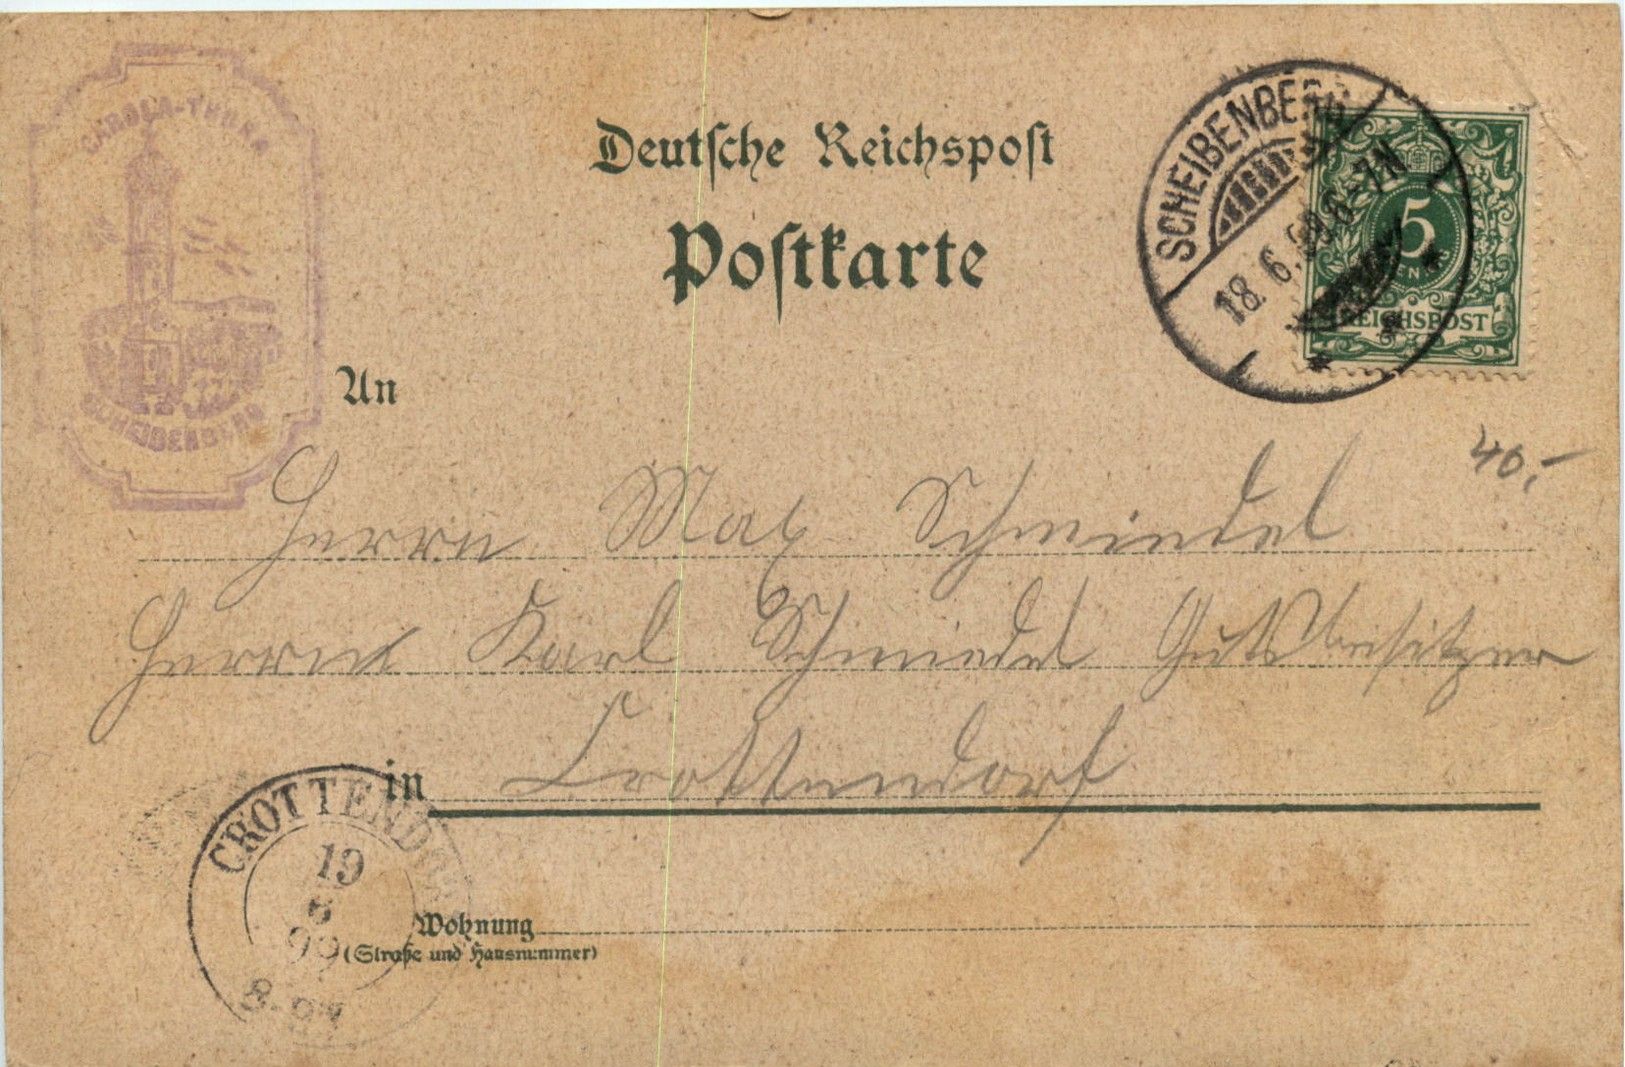 CAROLA-THURM
SCHEIBENBERG
Deutsche Reichspost
Postkarte
SCHEIBENBERG
18. 6. 99 6-7N
5
REICHSPOST
An
40,-
Herrn Max Schmiedel
Herrn Karl Schmiedel Gutsbesitzer
in Crottendorf
CROTTENDORF
19
6
99
Wohnung
(Straße und Hausnummer)